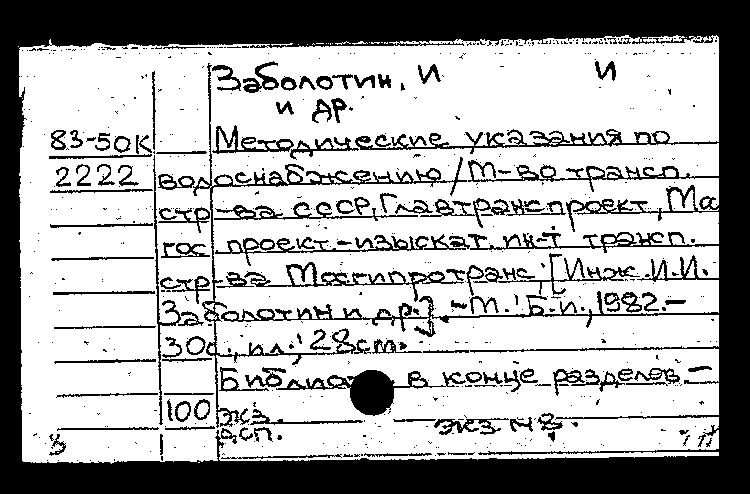 Заболотин, И И
и др.
83-50К Методические указания по
2222 водоснабжению / М-во трансп.
стр-ва СССР, Главтранспроект, Мос
гос проект.-изыскат. ин-т трансп.
стр-ва Мосгипротранс; [Инж. И.И.
Заболотин и др.]. - М.: Б.и., 1982. -
30с., ил.; 28см.
Библиог в конце разделов. -
100 экз.
ДСП. экз № 8.